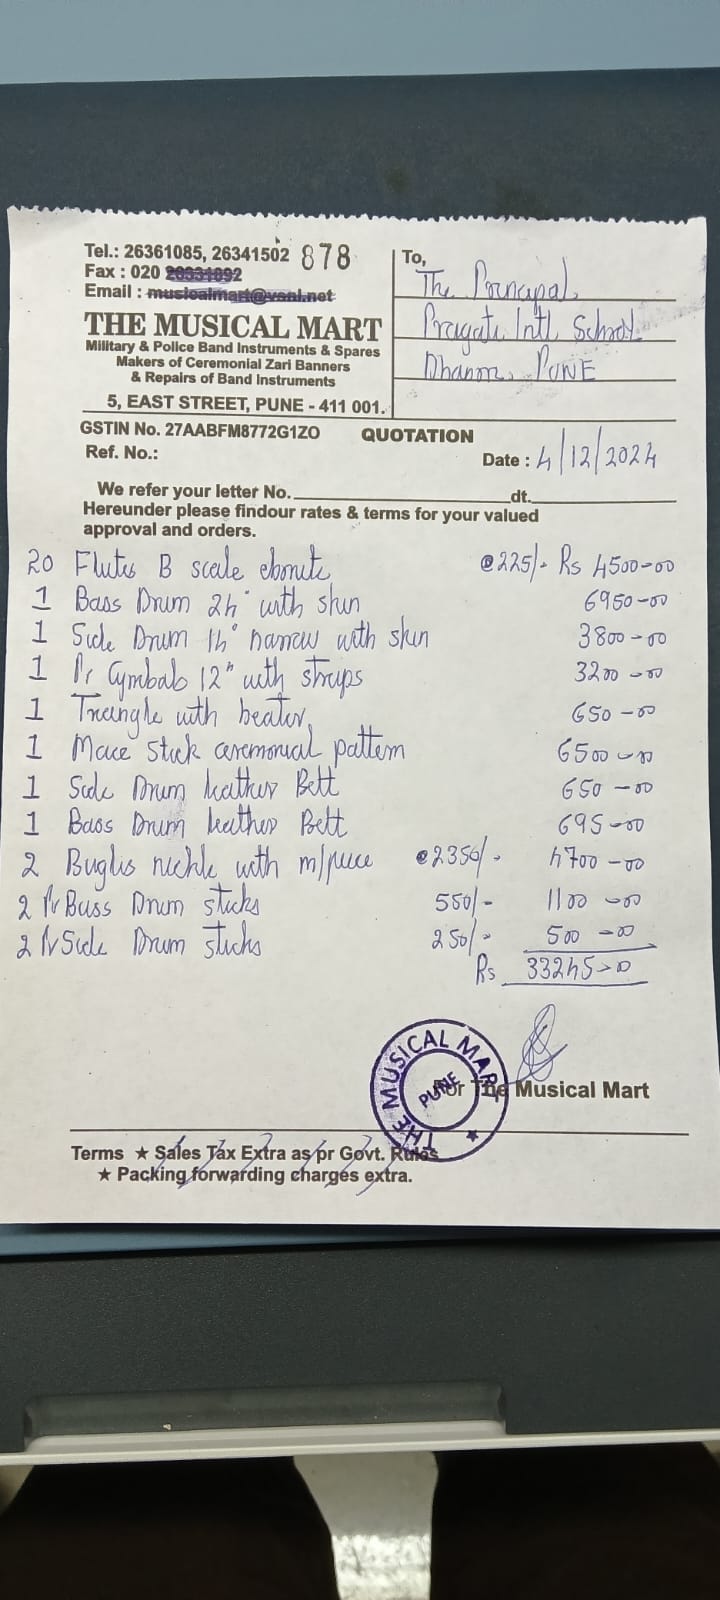 Tel.: 26361085, 26341502 878
Fax : 020
Email : musicalmart@vsnl.net
THE MUSICAL MART
Military & Police Band Instruments & Spares
Makers of Ceremonial Zari Banners
& Repairs of Band Instruments
5, EAST STREET, PUNE - 411 001.
To,
The Principal,
Pragati Intl School
PUNE
GSTIN No. 27AABFM8772G1ZO QUOTATION
Ref. No.:
Date : 4/12/2024
We refer your letter No. dt.
Hereunder please findour rates & terms for your valued
approval and orders.
20 Flutes B scale ebonite @225/- Rs 4500-00
1 Bass Drum 24" with skin 6950-00
1 Side Drum 14" narrow with skin 3800-00
1 Pr Cymbals 12" with straps 3200-00
1 Triangle with beater 650-00
1 Mace stick ceremonial pattern 6500-00
1 Side Drum leather Belt 650-00
1 Bass Drum leather Belt 695-00
2 Bugles nickle with m/piece @2350/- 4700-00
2 Pr Bass Drum sticks 550/- 1100-00
2 Pr Side Drum sticks 250/- 500-00
Rs 33245-0
THE MUSICAL MART
PUNE
For The Musical Mart
Terms ★ Sales Tax Extra as pr Govt. Rules
★ Packing forwarding charges extra.